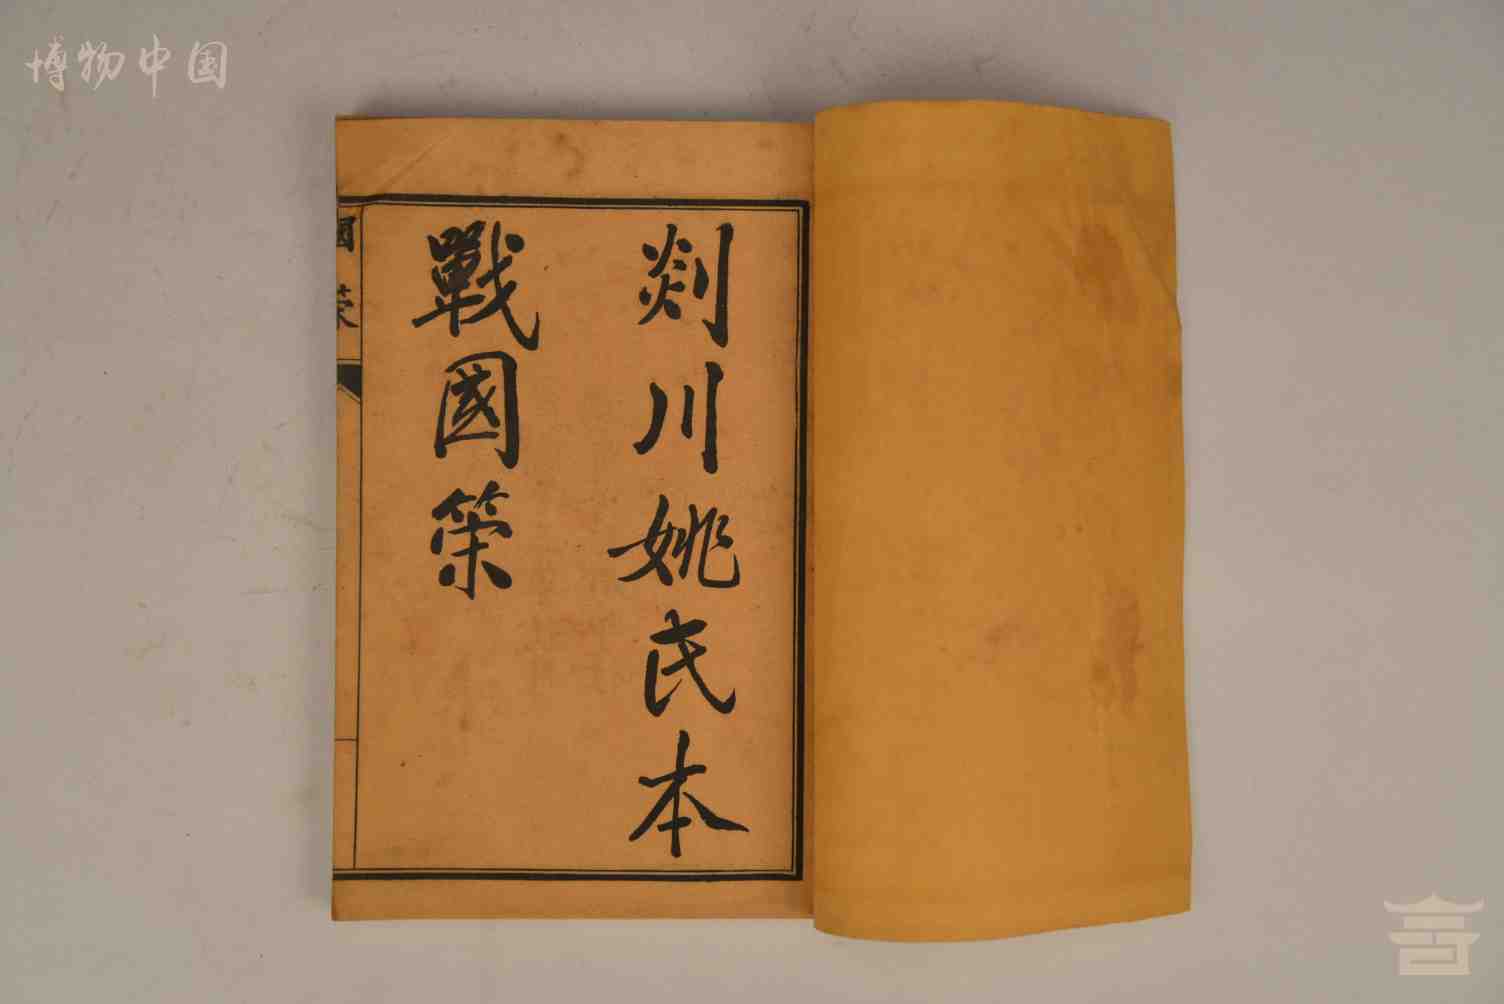 博物中国
剡川姚氏本
戰國策
國策